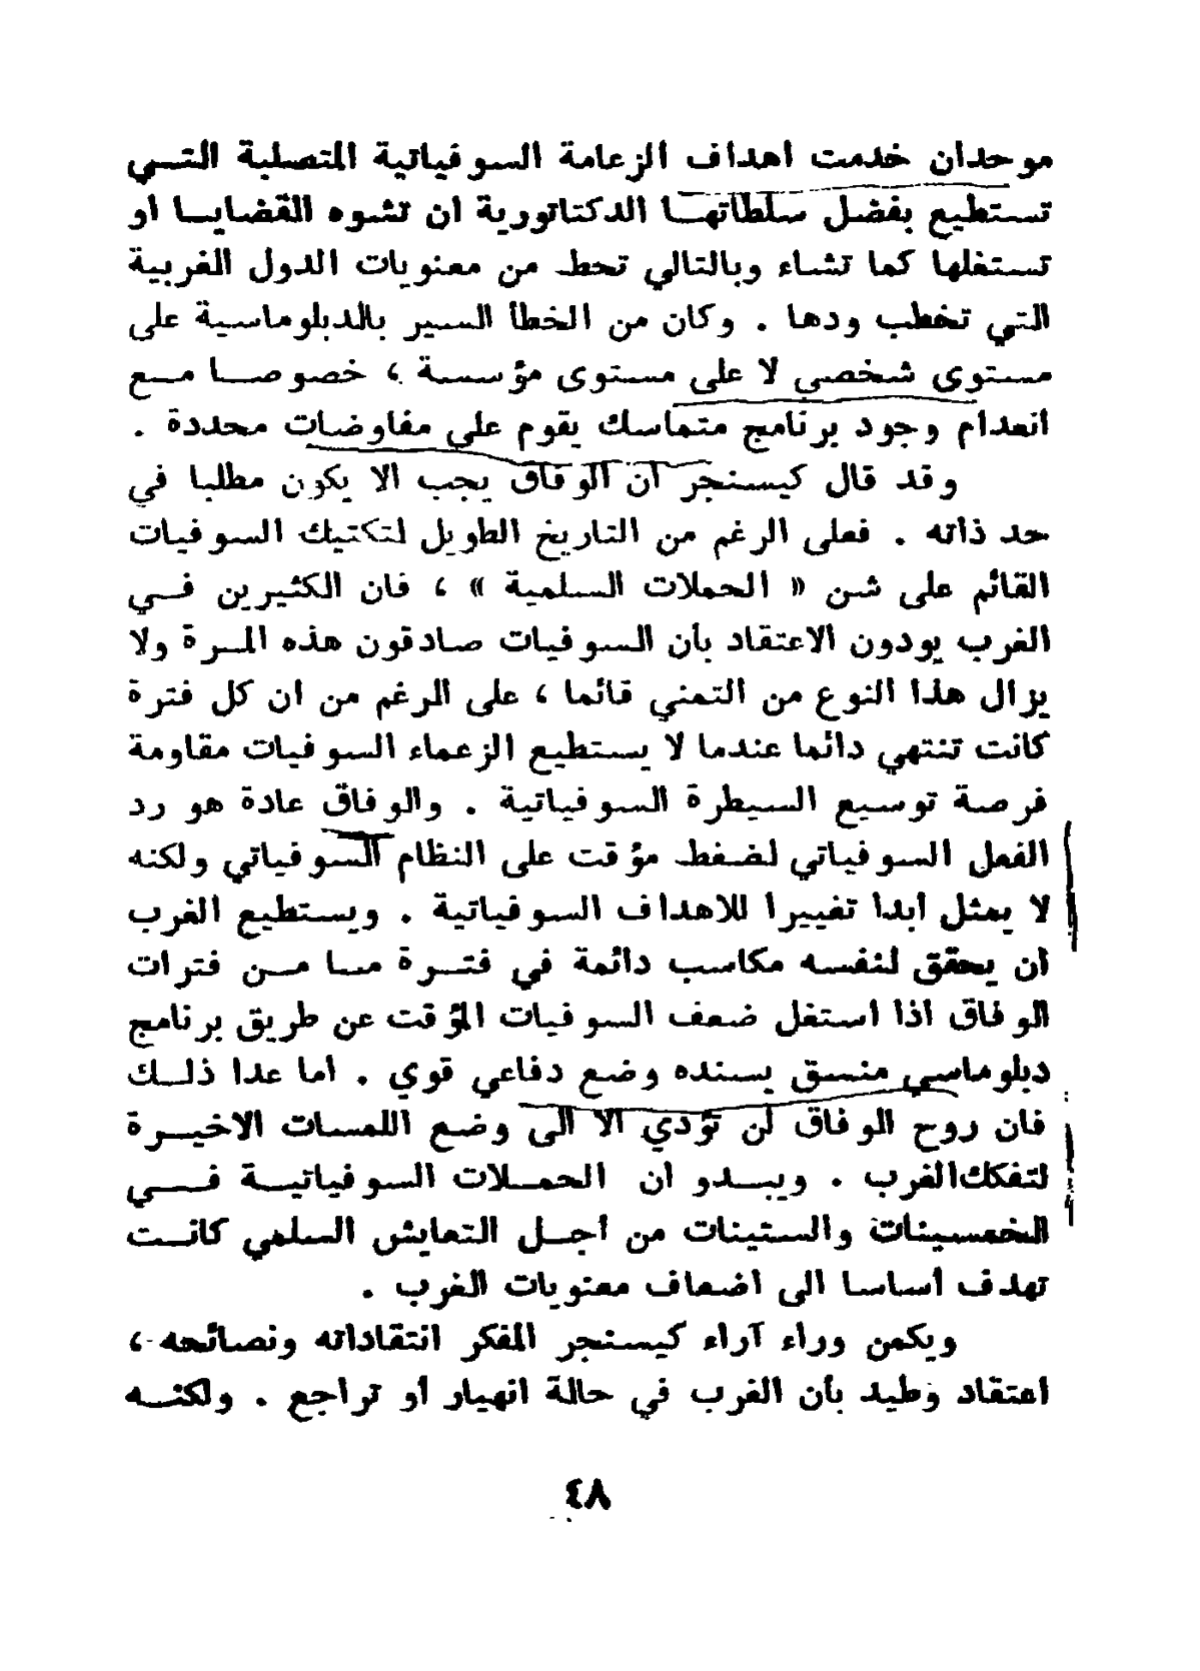 موحدان خدمت اهداف الزعامة السوفياتية المتصلبة التـي
تستطيع بفضل سلطاتهـا الدكتاتورية ان تشوه القضايـا او
تستغلها كما تشاء وبالتالي تحط من معنويات الدول الغربية
التي تخطب ودها . وكان من الخطأ السير بالدبلوماسية على
مستوى شخصي لا على مستوى مؤسسة ، خصوصـا مـع
انعدام وجود برنامج متماسك يقوم على مفاوضات محددة .
وقد قال كيسنجر ان الوفاق يجب الا يكون مطلبا في
حد ذاته . فعلى الرغم من التاريخ الطويل لتكتيك السوفيات
القائم على شن « الحملات السلمية » ، فان الكثيرين فـي
الغرب يودون الاعتقاد بأن السوفيات صادقون هذه المـرة ولا
يزال هذا النوع من التمني قائما ، على الرغم من ان كل فترة
كانت تنتهي دائما عندما لا يستطيع الزعماء السوفيات مقاومة
فرصة توسيع السيطرة السوفياتية . والوفاق عادة هو رد
الفعل السوفياتي لضغط مؤقت على النظام السوفياتي ولكنه
لا يمثل أبدا تغييرا للاهداف السوفياتية . ويستطيع الغرب
أن يحقق لنفسه مكاسب دائمة في فتـرة مـا مـن فترات
الوفاق اذا استغل ضعف السوفيات المؤقت عن طريق برنامج
دبلوماسي منسق يسنده وضع دفاعي قوي . اما عدا ذلـك
فان روح الوفاق لن تؤدي الا الى وضع اللمسات الاخيـرة
لتفكك الغرب . ويبـدو ان الحمـلات السوفياتيـة فـي
الخمسينات والستينات من أجـل التعايش السلمي كانـت
تهدف أساسا الى اضعاف معنويات الغرب .
ويكمن وراء آراء كيسنجر المفكر انتقاداته ونصائحه ،
اعتقاد وطيد بأن الغرب في حالة انهيار أو تراجع . ولكنـه
٤٨